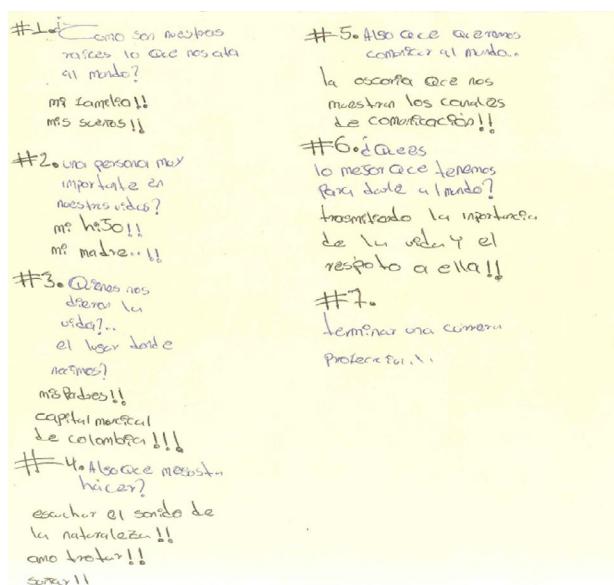 #1. ¿Como son nuestras
raices lo Qce nos ata
al mundo?
mi famelia!!
mis sueños!!
#2. una persona muy
importante en
nuestras vidas?
mi hiJo!!
mi madre..!!
#3. Quienes nos
dieron la
vida?..
el lugar donde
nacimos?
mis Padres!!
capital musical
de colombia!!!
#4. Algo Qce me gusta
hacer?
escuchar el sonido de
la naturaleza!!
amo trotar!!
soñar!!
#5. Algo Qce Queremos
comunicar al mundo..
la escoria Qce nos
muestran los canales
de comunicación!!
#6. ¿Quees
lo mejor Qce tenemos
para darle al mundo?
trasmitiendo la inportancia
de la vida Y el
respeto a ella!!
#7.
terminar una carrera